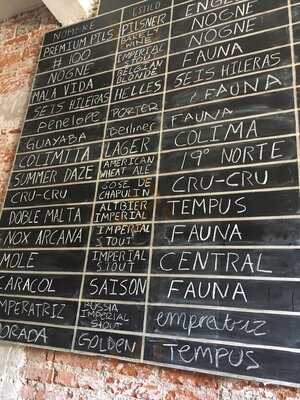 NOMBRE ESTILO
PREMIUM PILS PILSNER
# 100 BARLEY WINE NØGNE
NØGNE IMPERIAL NØGNE
MALA VIDA BELGIAN BLONDE FAUNA
SEIS HILERAS HELLES SEIS HILERAS
penelope PORTER FAUNA
GUAYABA Berliner FAUNA
COLIMITA LAGER COLIMA
SUMMER DAZE AMERICAN WHEAT ALE 19° NORTE
CRU-CRU GOSE DE CHAPULIN CRU-CRU
DOBLE MALTA ALTBIER IMPERIAL TEMPUS
NOX ARCANA IMPERIAL STOUT FAUNA
MOLE IMPERIAL STOUT CENTRAL
CARACOL SAISON FAUNA
MPERATRIZ RUSSIA IMPERIAL STOUT empratriz
DORADA GOLDEN TEMPUS